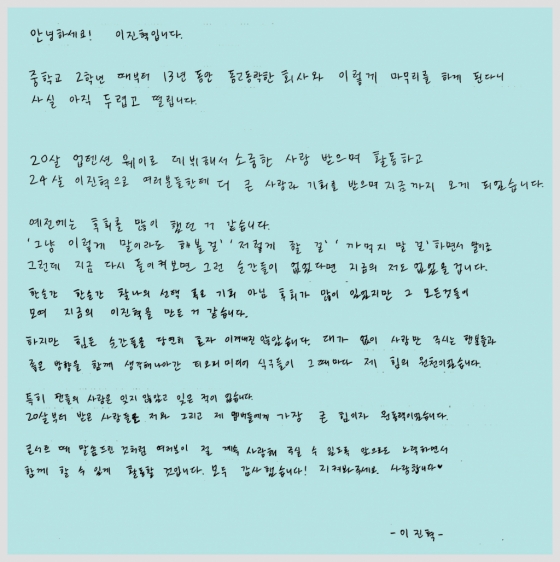 안녕하세요! 이진혁입니다.
중학교 2학년 때부터 13년 동안 동고동락한 회사와 이렇게 마무리를 하게 된다니
사실 아직 두렵고 떨립니다.
20살 업텐션 웨이로 데뷔해서 소중한 사랑 받으며 활동하고
24살 이진혁으로 여러분들한테 더 큰 사랑과 기회를 받으며 지금까지 오게 되었습니다.
예전에는 후회를 많이 했던 거 같습니다.
'그냥 이렇게 말이라도 해볼걸' '저렇게 할 걸' '까먹지 말 걸' 하면서 말이죠
그런데 지금 다시 돌이켜보면 그런 순간들이 없었다면 지금의 저도 없었을 겁니다.
한순간 한순간 찰나의 선택 혹은 기회 아님 후회가 많이 있었지만 그 모든것들이
모여 지금의 이진혁을 만든 거 같습니다.
하지만 힘든 순간들을 당연히 혼자 이겨내진 않았습니다. 대가 없이 사랑만 주시는 팬분들과
좋은 방향을 함께 생각해나아간 티오피미디어 식구들이 그때마다 제 힘의 원천이었습니다.
특히 팬들의 사랑은 잊지 않았고 잊은 적이 없습니다.
20살부터 받은 사랑들은 저와 그리고 제 멤버들에게 가장 큰 힘이자 원동력이었습니다.
콘서트 때 말씀드린 것처럼 여러분이 절 계속 사랑해 주실 수 있도록 앞으로도 노력하면서
함께 할 수 있게 활동할 것입니다. 모두 감사했습니다! 지켜봐주세요. 사랑합니다♥
- 이진혁 -